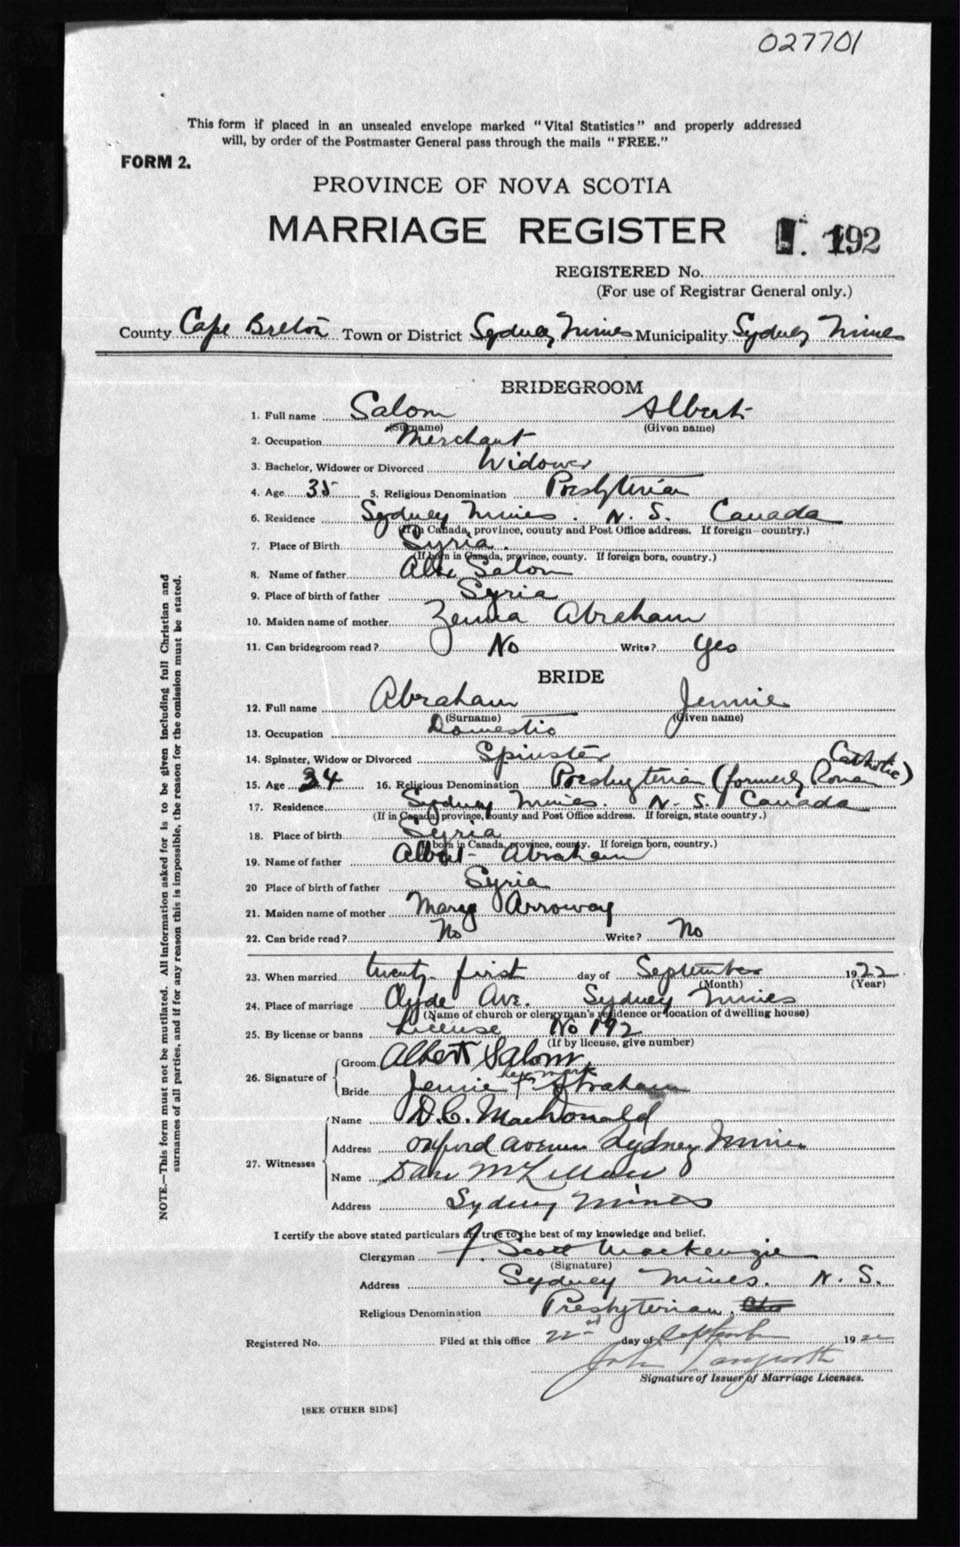 027701
This form if placed in an unsealed envelope marked "Vital Statistics" and properly addressed
will, by order of the Postmaster General pass through the mails "FREE."
FORM 2.
PROVINCE OF NOVA SCOTIA
MARRIAGE REGISTER 192
REGISTERED No.
(For use of Registrar General only.)
County Cape Breton Town or District Sydney Mines Municipality Sydney Mines
BRIDEGROOM
1. Full name Salom Albert
(Surname) (Given name)
2. Occupation Merchant
3. Bachelor, Widower or Divorced Widower
4. Age 35 5. Religious Denomination Presbyterian
6. Residence Sydney Mines. N. S. Canada
(If in Canada, province, county and Post Office address. If foreign country.)
7. Place of Birth Syria.
(If born in Canada, province, county. If foreign born, country.)
8. Name of father Salom
9. Place of birth of father Syria
10. Maiden name of mother Abraham
11. Can bridegroom read? No Write? Yes
BRIDE
12. Full name Abraham Jennie
(Surname) (Given name)
13. Occupation Domestic
14. Spinster, Widow or Divorced Spinster
15. Age 34 16. Religious Denomination Presbyterian (formerly Roman Catholic)
17. Residence Sydney Mines. N. S. Canada
(If in Canada, province, county and Post Office address. If foreign, state country.)
18. Place of birth Syria
(If born in Canada, province, county. If foreign born, country.)
19. Name of father Albert Abraham
20 Place of birth of father Syria
21. Maiden name of mother Mary Arroway
22. Can bride read? No Write? No
23. When married twenty-first day of September 1922
(Month) (Year)
24. Place of marriage Clyde Ave. Sydney Mines
(Name of church or clergyman's residence or location of dwelling house)
25. By license or banns License No 192
(If by license, give number)
26. Signature of Groom Albert Salom.
Bride Jennie her X mark Abraham
27. Witnesses Name D. C. MacDonald
Address Oxford Avenue Sydney Mines
Name Dan
Address Sydney Mines
I certify the above stated particulars are true to the best of my knowledge and belief.
Clergyman J. Scott Mackenzie
(Signature)
Address Sydney Mines. N. S.
Religious Denomination Presbyterian.
Registered No. Filed at this office 22nd day of September 1922
John
Signature of Issuer of Marriage Licenses.
[SEE OTHER SIDE]
NOTE.—This form must not be mutilated. All information asked for is to be given including full Christian and
surnames of all parties, and if for any reason this is impossible, the reason for the omission must be stated.